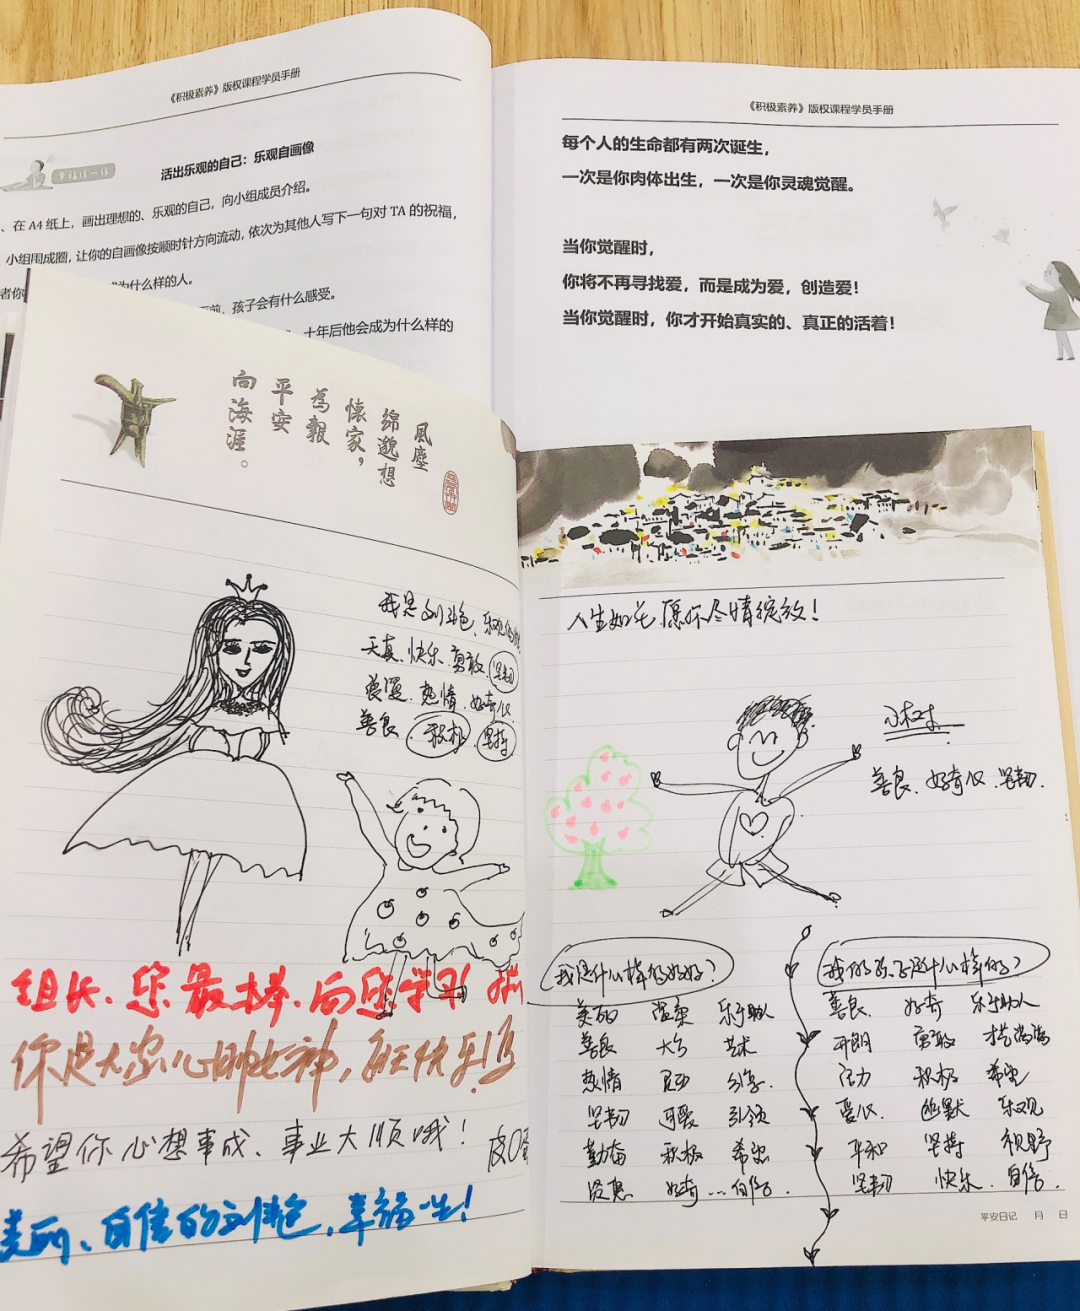 《积极素养》版权课程学员手册
活出乐观的自己：乐观自画像
、在 A4 纸上，画出理想的、乐观的自己，向小组成员介绍。
小组围成圈，让你的自画像按顺时针方向流动，依次为其他人写下一句对 TA 的祝福，
者你
为什么样的人。
前，孩子会有什么感受。
十年后他会成为什么样的
《积极素养》版权课程学员手册
每个人的生命都有两次诞生，
一次是你肉体出生，一次是你灵魂觉醒。
当你觉醒时，
你将不再寻找爱，而是成为爱，创造爱！
当你觉醒时，你才开始真实的、真正的活着！
風塵
綿邈想
懷家，
為報
平安
向海涯。
我是刘艳、乐观
天真、快乐、勇敢、坚韧
浪漫、热情、好奇心
善良、积极、坚持
组长、您最棒、向您学习
你是大家心中的女神，每天快乐！
希望你心想事成、事业大顺哦！
美丽、自信的刘艳，幸福一生！
人生如花 愿你尽情绽放！
小树
善良、好奇心、坚韧、
我是什么样的妈妈？
美丽 温柔 乐于助人
善良 大气 艺术
热情 分享
坚韧 可爱 引领
勤奋 积极 希望
贤惠 好奇 … 自信、
我的孩子是什么样的？
善良、 好奇 乐于助人
开朗 勇敢
活力 积极 希望
爱心、 幽默 乐观
平和 坚持 视野
坚韧 快乐、 自信、
平安日记 月 日